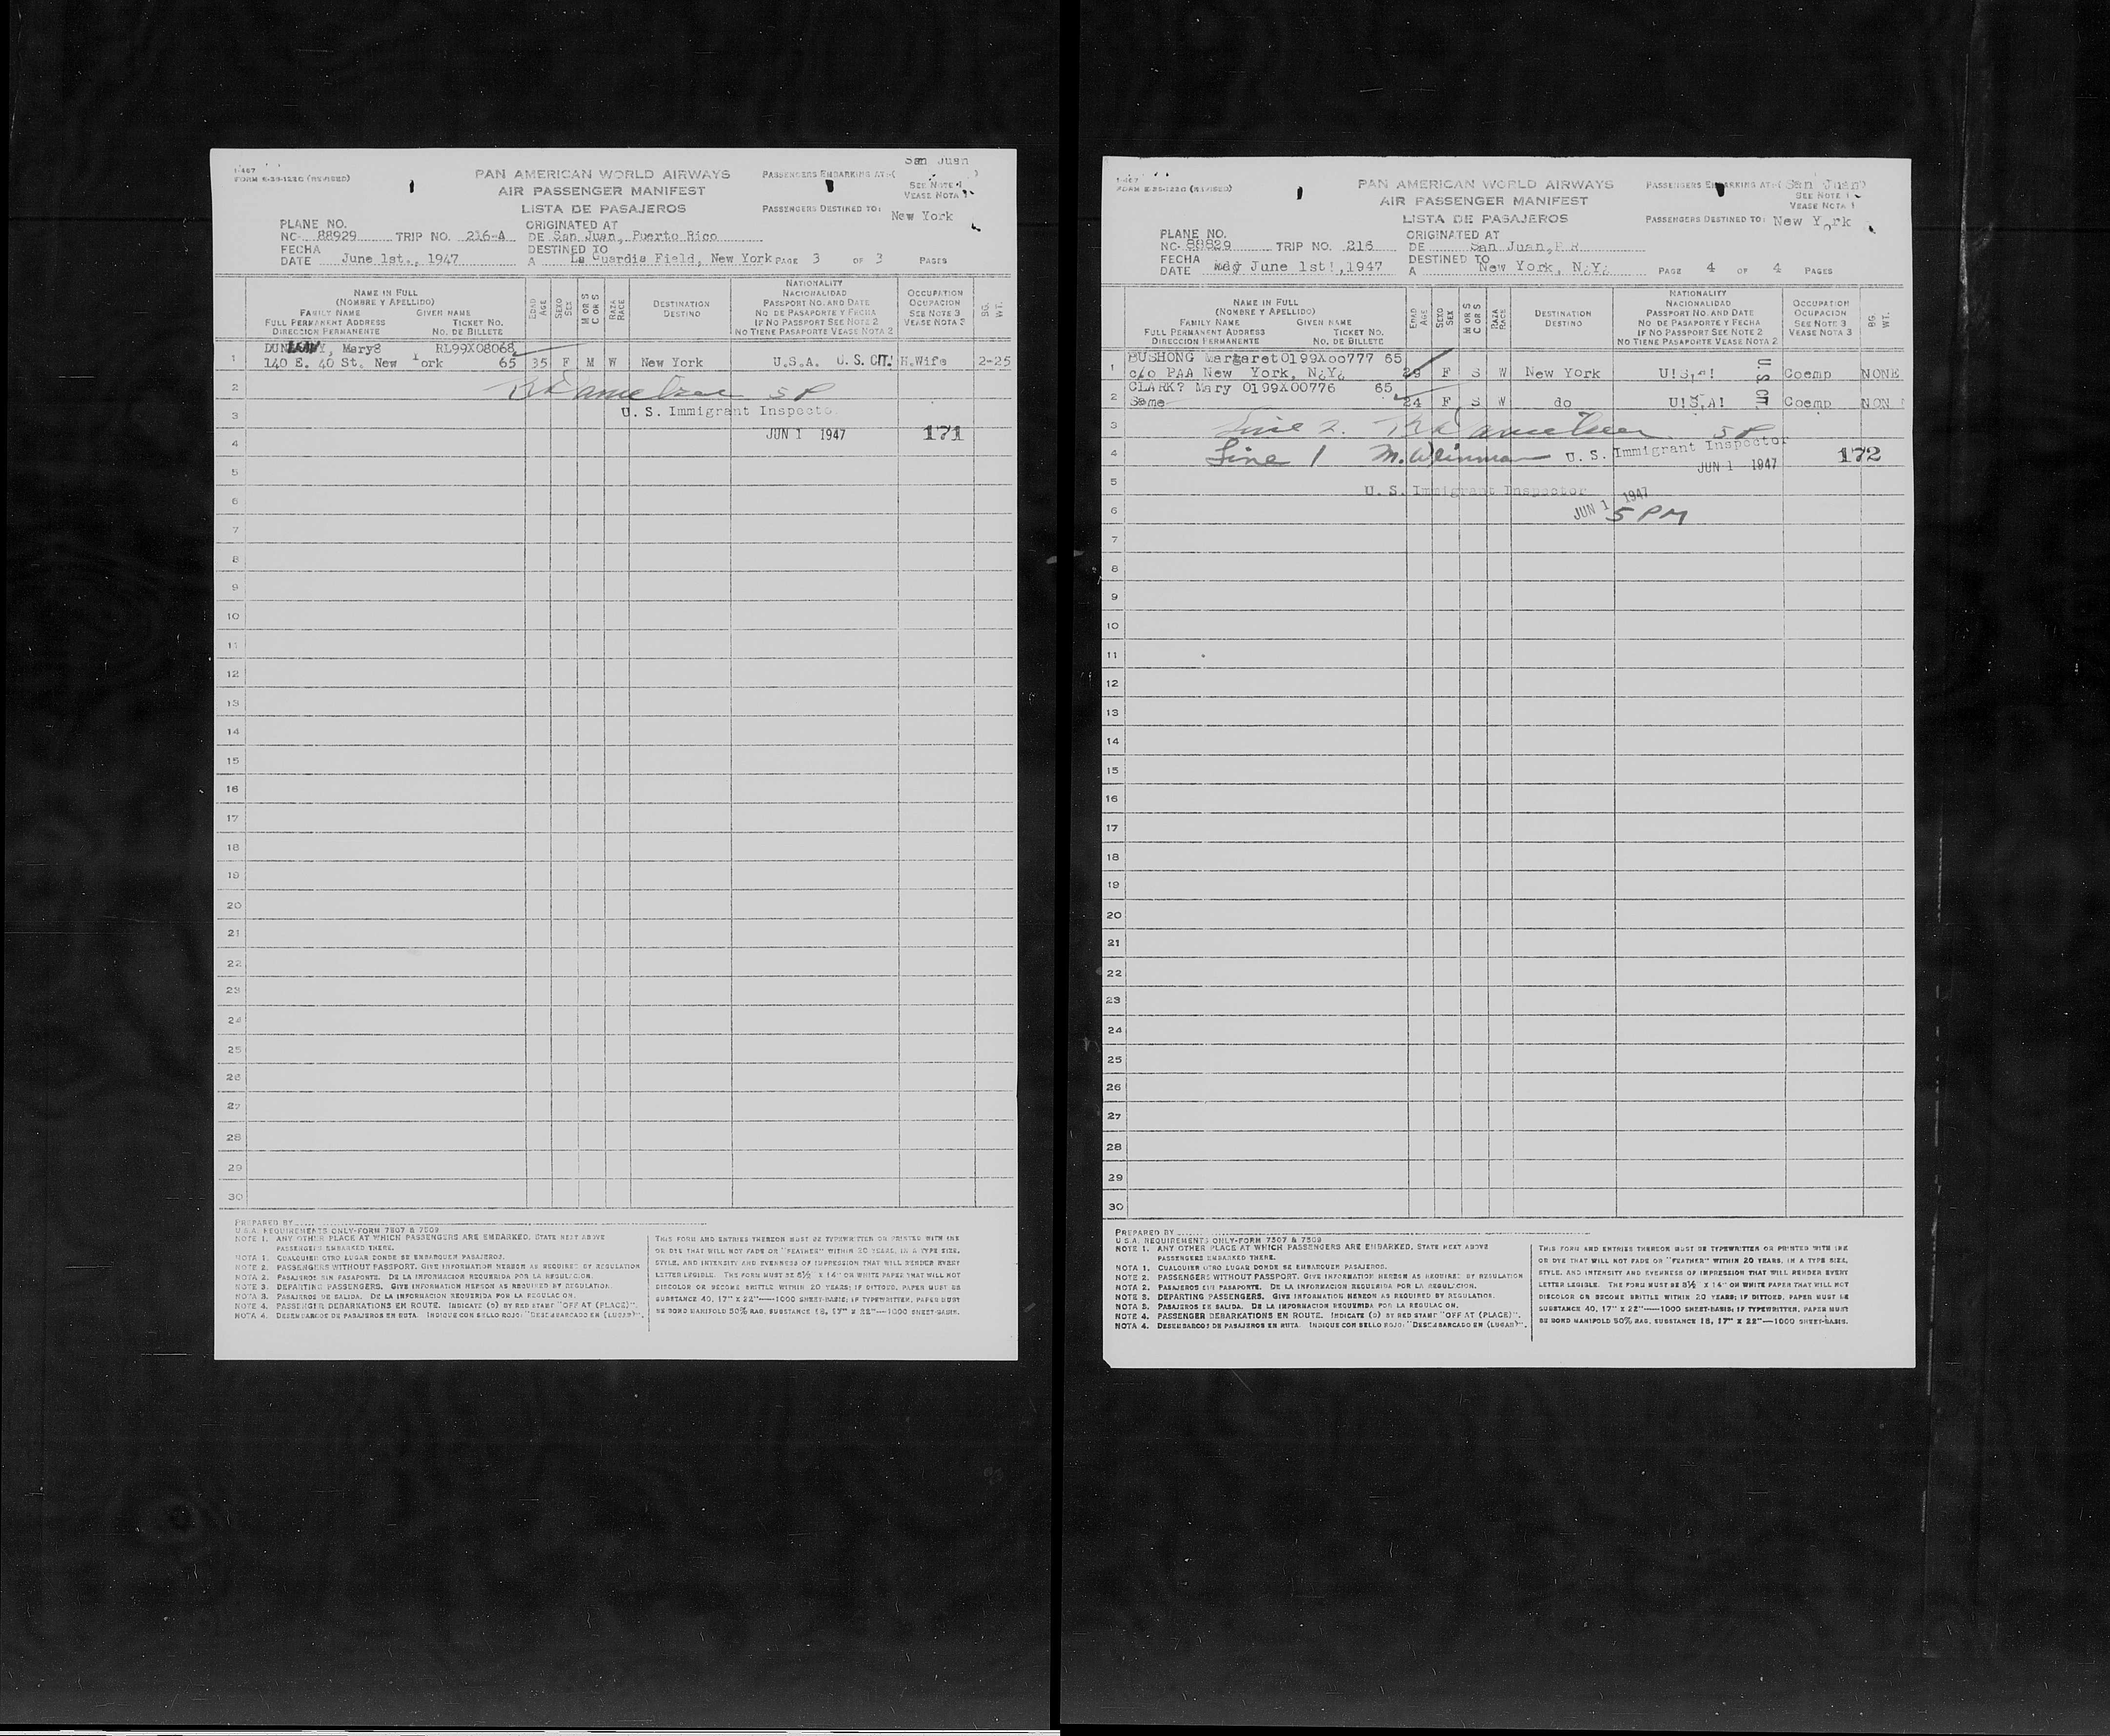 San Juan
1-467
FORM E-35-122C (REVISED)
PAN AMERICAN WORLD AIRWAYS
PASSENGERS EMBARKING AT: ( )
AIR PASSENGER MANIFEST
SEE NOTE 1
VEASE NOTA 1
LISTA DE PASAJEROS
PASSENGERS DESTINED TO: New York
PLANE NO.
NC- 88929 TRIP NO. 216-A
ORIGINATED AT
DE San Juan, Puerto Rico
FECHA
DATE June 1st., 1947
DESTINED TO
A La Guardia Field, New York PAGE 3 OF 3 PAGES
NAME IN FULL
(NOMBRE Y APELLIDO)
FAMILY NAME GIVEN NAME
FULL PERMANENT ADDRESS TICKET NO.
DIRECCION PERMANENTE NO. DE BILLETE
EDAD AGE
SEXO SEX
M OR S C OR S
RAZA RACE
DESTINATION
DESTINO
NATIONALITY
NACIONALIDAD
PASSPORT NO. AND DATE
NO. DE PASAPORTE Y FECHA
IF NO PASSPORT SEE NOTE 2
NO TIENE PASAPORTE VEASE NOTA 2
OCCUPATION
OCUPACION
SEE NOTE 3
VEASE NOTA 3
BG. WT.
Mary8 RL99X08068
1 140 E. 40 St. New York 65 35 F M W New York U.S.A. U. S. CIT. H.Wife 2-25
2 5 P
3 U. S. Immigrant Inspector
JUN 1 1947 171
4
5
6
7
8
9
10
11
12
13
14
15
16
17
18
19
20
21
22
23
24
25
26
27
28
29
30
PREPARED BY
U.S.A. REQUIREMENTS ONLY-FORM 7507 & 7509
NOTE 1. ANY OTHER PLACE AT WHICH PASSENGERS ARE EMBARKED, STATE NEXT ABOVE
PASSENGERS EMBARKED THERE.
NOTA 1. CUALQUIER OTRO LUGAR DONDE SE EMBARQUEN PASAJEROS.
NOTE 2. PASSENGERS WITHOUT PASSPORT. GIVE INFORMATION HEREON AS REQUIRED BY REGULATION
NOTA 2. PASAJEROS SIN PASAPORTE. DE LA INFORMACION REQUERIDA POR LA REGULACION.
NOTE 3. DEPARTING PASSENGERS. GIVE INFORMATION HEREON AS REQUIRED BY REGULATION.
NOTA 3. PASAJEROS DE SALIDA. DE LA INFORMACION REQUERIDA POR LA REGULACION.
NOTE 4. PASSENGER DEBARKATIONS EN ROUTE. INDICATE (D) BY RED STAMP "OFF AT (PLACE)".
NOTA 4. DESEMBARCOS DE PASAJEROS EN RUTA. INDIQUE CON SELLO ROJO: "DESEMBARCADO EN (LUGAR)".
THIS FORM AND ENTRIES THEREON MUST BE TYPEWRITTEN OR PRINTED WITH INK
OR DYE THAT WILL NOT FADE OR "FEATHER" WITHIN 20 YEARS, IN A TYPE SIZE,
STYLE, AND INTENSITY AND EVENNESS OF IMPRESSION THAT WILL RENDER EVERY
LETTER LEGIBLE. THE FORM MUST BE 8½ X 14" OR WHITE PAPER THAT WILL NOT
DISCOLOR OR BECOME BRITTLE WITHIN 20 YEARS; IF DITTOED, PAPER MUST BE
SUBSTANCE 40, 17" X 22"—1000 SHEET-BASIS; IF TYPEWRITTEN, PAPER MUST
BE BOND MANIFOLD 50% RAG, SUBSTANCE 18, 17" X 22"—1000 SHEET-BASIS.
1-467
FORM E-35-122C (REVISED)
PAN AMERICAN WORLD AIRWAYS
PASSENGERS EMBARKING AT: (San Juan)
AIR PASSENGER MANIFEST
SEE NOTE 1
VEASE NOTA 1
LISTA DE PASAJEROS
PASSENGERS DESTINED TO: New York
PLANE NO.
NC- 88829 TRIP NO. 216
ORIGINATED AT
DE San Juan, P.R.
FECHA
DATE May June 1st!,1947
DESTINED TO
A New York, N¿Y¿ PAGE 4 OF 4 PAGES
NAME IN FULL
(NOMBRE Y APELLIDO)
FAMILY NAME GIVEN NAME
FULL PERMANENT ADDRESS TICKET NO.
DIRECCION PERMANENTE NO. DE BILLETE
EDAD AGE
SEXO SEX
M OR S C OR S
RAZA RACE
DESTINATION
DESTINO
NATIONALITY
NACIONALIDAD
PASSPORT NO. AND DATE
NO. DE PASAPORTE Y FECHA
IF NO PASSPORT SEE NOTE 2
NO TIENE PASAPORTE VEASE NOTA 2
OCCUPATION
OCUPACION
SEE NOTE 3
VEASE NOTA 3
BG. WT.
BUSHONG Margaret 0199X00777 65
1 c/o PAA New York, N¿Y¿ 29 F S W New York U!S,A! Coemp NONE
U. S. CIT.
CLARK? Mary 0199X00776 65
2 Same 24 F S W do U!S,A! Coemp NON
3 Line 2. 5 P
4 Line 1 M. Weinman U. S. Immigrant Inspector
JUN 1 1947 172
5 U. S. Immigrant Inspector
6 JUN 1 1947 5 PM
7
8
9
10
11
12
13
14
15
16
17
18
19
20
21
22
23
24
25
26
27
28
29
30
PREPARED BY
U.S.A. REQUIREMENTS ONLY-FORM 7507 & 7509
NOTE 1. ANY OTHER PLACE AT WHICH PASSENGERS ARE EMBARKED, STATE NEXT ABOVE
PASSENGERS EMBARKED THERE.
NOTA 1. CUALQUIER OTRO LUGAR DONDE SE EMBARQUEN PASAJEROS.
NOTE 2. PASSENGERS WITHOUT PASSPORT. GIVE INFORMATION HEREON AS REQUIRED BY REGULATION
NOTA 2. PASAJEROS SIN PASAPORTE. DE LA INFORMACION REQUERIDA POR LA REGULACION.
NOTE 3. DEPARTING PASSENGERS. GIVE INFORMATION HEREON AS REQUIRED BY REGULATION.
NOTA 3. PASAJEROS DE SALIDA. DE LA INFORMACION REQUERIDA POR LA REGULACION.
NOTE 4. PASSENGER DEBARKATIONS EN ROUTE. INDICATE (D) BY RED STAMP "OFF AT (PLACE)".
NOTA 4. DESEMBARCOS DE PASAJEROS EN RUTA. INDIQUE CON SELLO ROJO: "DESEMBARCADO EN (LUGAR)".
THIS FORM AND ENTRIES THEREON MUST BE TYPEWRITTEN OR PRINTED WITH INK
OR DYE THAT WILL NOT FADE OR "FEATHER" WITHIN 20 YEARS, IN A TYPE SIZE,
STYLE, AND INTENSITY AND EVENNESS OF IMPRESSION THAT WILL RENDER EVERY
LETTER LEGIBLE. THE FORM MUST BE 8½ X 14" OR WHITE PAPER THAT WILL NOT
DISCOLOR OR BECOME BRITTLE WITHIN 20 YEARS; IF DITTOED, PAPER MUST BE
SUBSTANCE 40, 17" X 22"—1000 SHEET-BASIS; IF TYPEWRITTEN, PAPER MUST
BE BOND MANIFOLD 50% RAG, SUBSTANCE 18, 17" X 22"—1000 SHEET-BASIS.